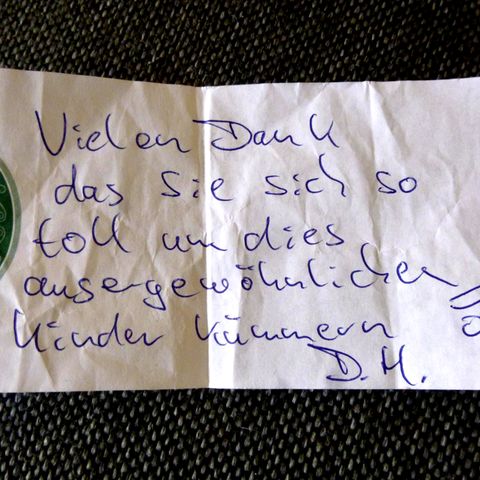 Vielen Dank
das Sie sich so
toll um dies
ausergewöhnlichen
Kinder kümmern
D.H.